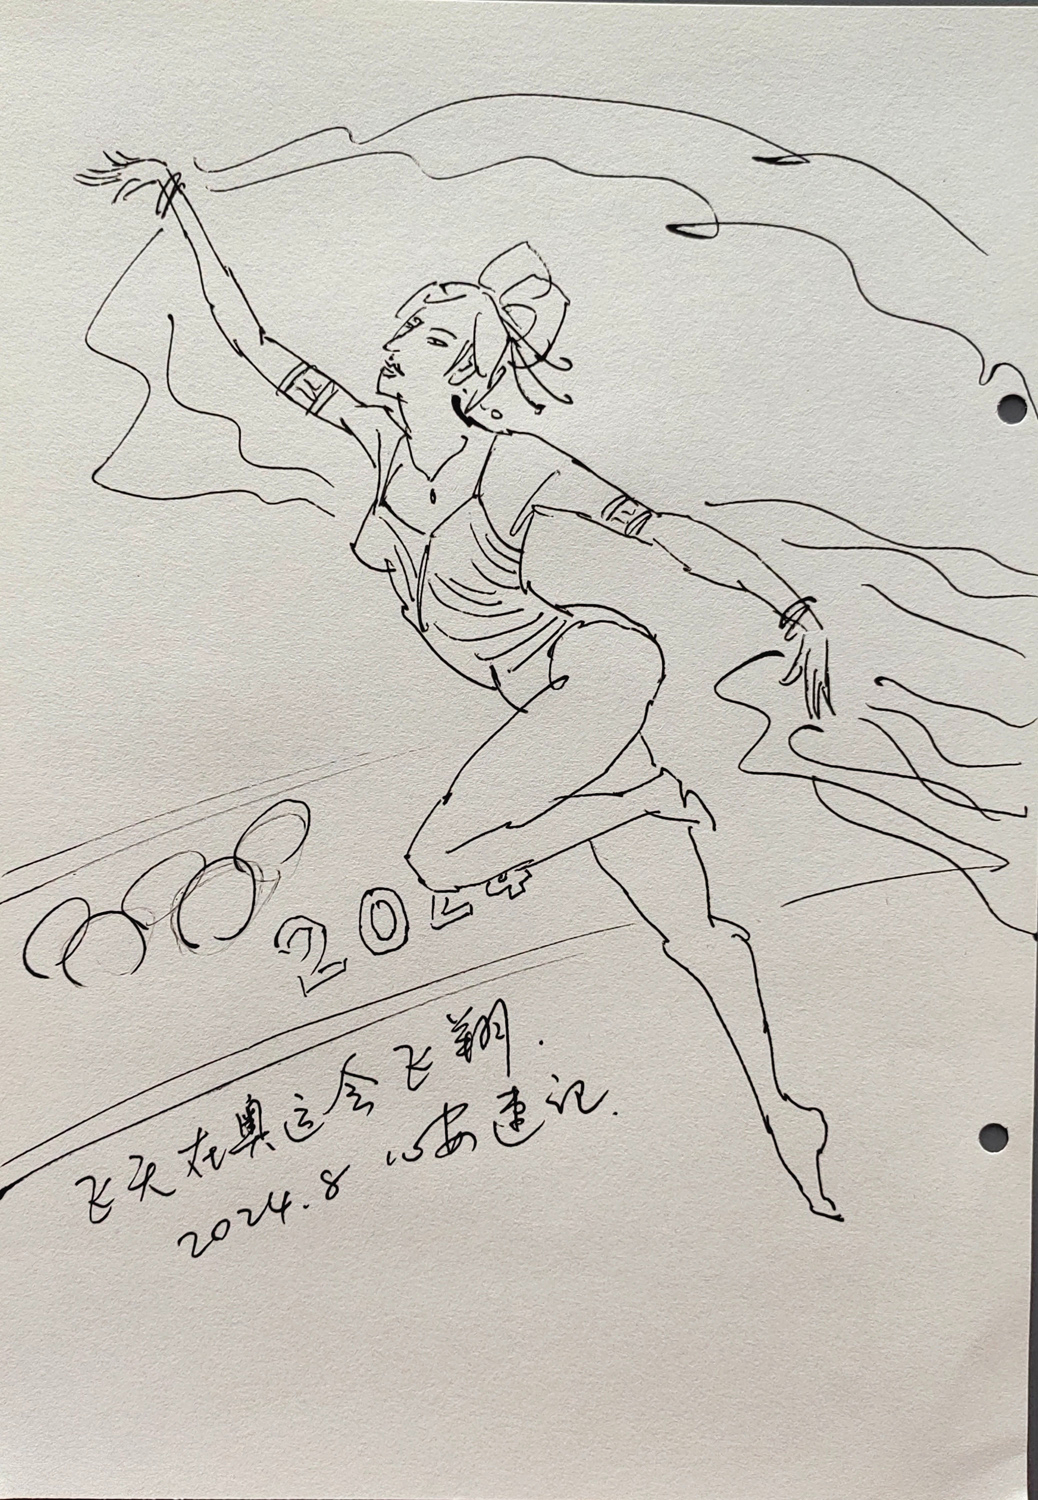 2024
飞天在奥运会飞翔.
2024.8 心安速记.